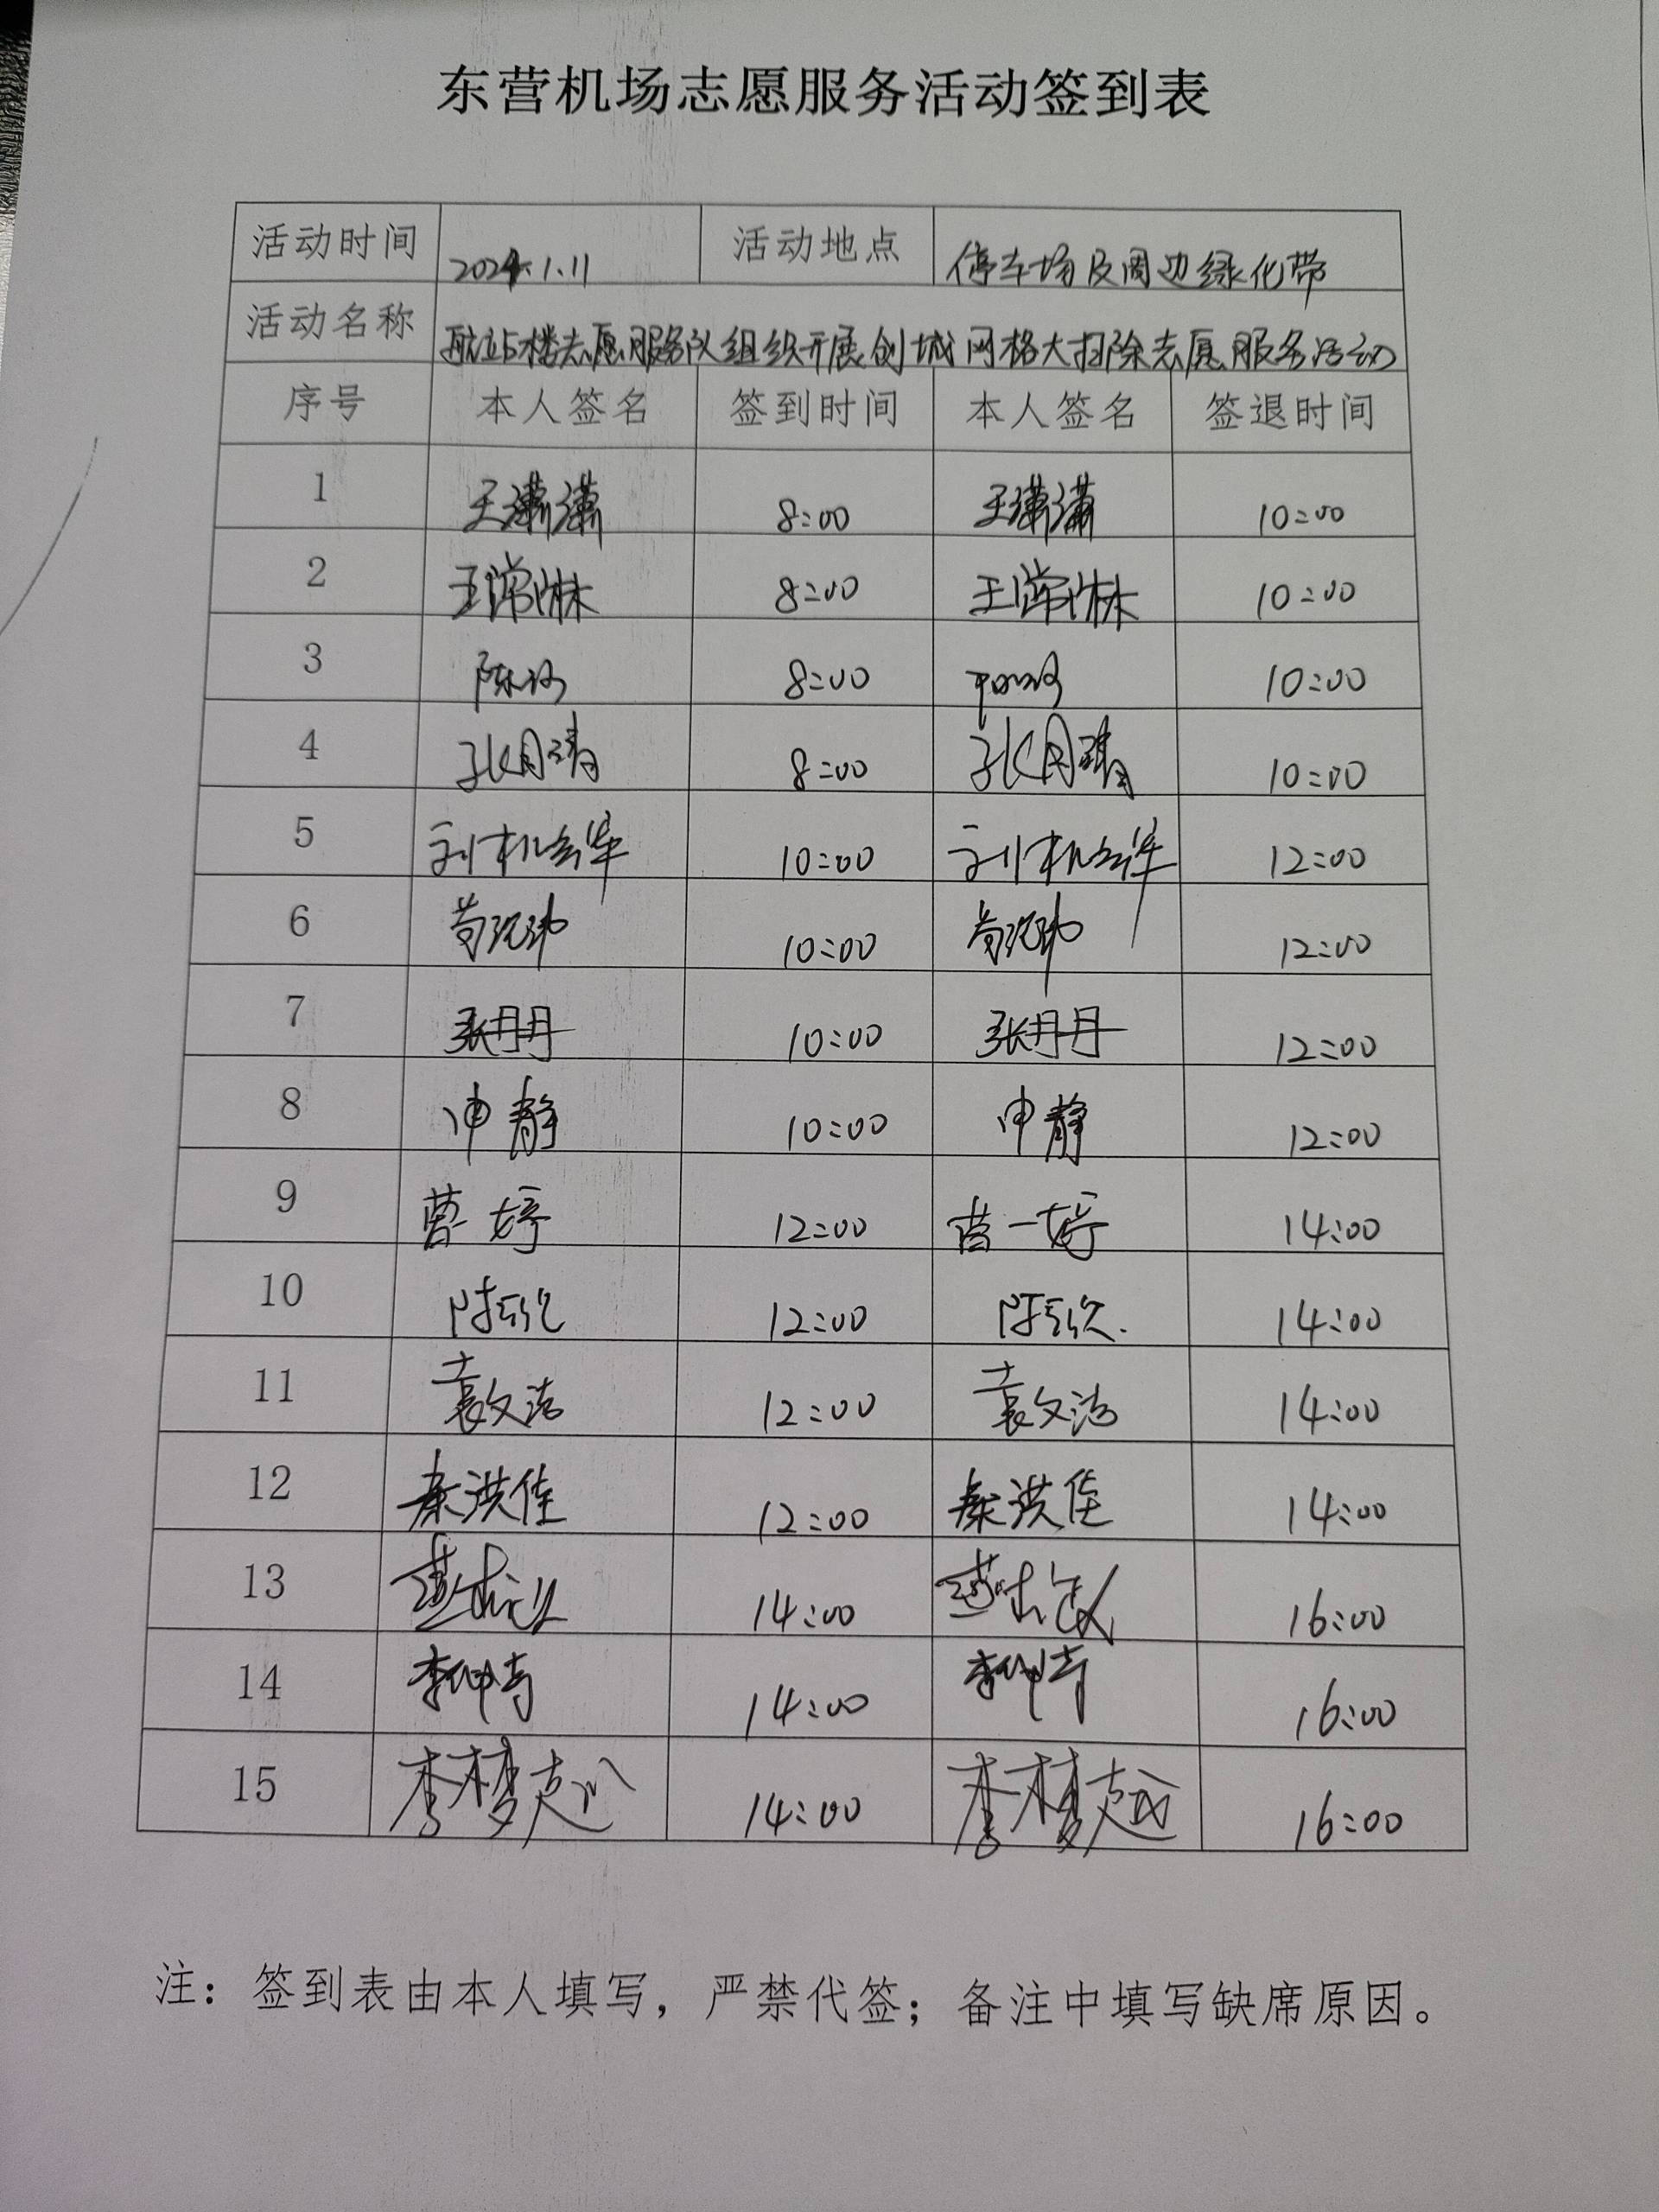 东营机场志愿服务活动签到表
活动时间 2024.1.11 活动地点 停车场及周边绿化带
活动名称 航站楼志愿服务队组织开展创城网格大扫除志愿服务活动
序号 本人签名 签到时间 本人签名 签退时间
1 王潇潇 8:00 王潇潇 10:00
2 8:00 10:00
3 8:00 10:00
4 孔月清 8:00 孔月清 10:00
5 10:00 12:00
6 10:00 12:00
7 张丹丹 10:00 张丹丹 12:00
8 申静 10:00 申静 12:00
9 曹一婷 12:00 曹一婷 14:00
10 12:00 14:00
11 袁文洁 12:00 袁文洁 14:00
12 秦洪佳 12:00 秦洪佳 14:00
13 14:00 16:00
14 14:00 16:00
15 李梦越 14:00 李梦越 16:00
注：签到表由本人填写，严禁代签；备注中填写缺席原因。